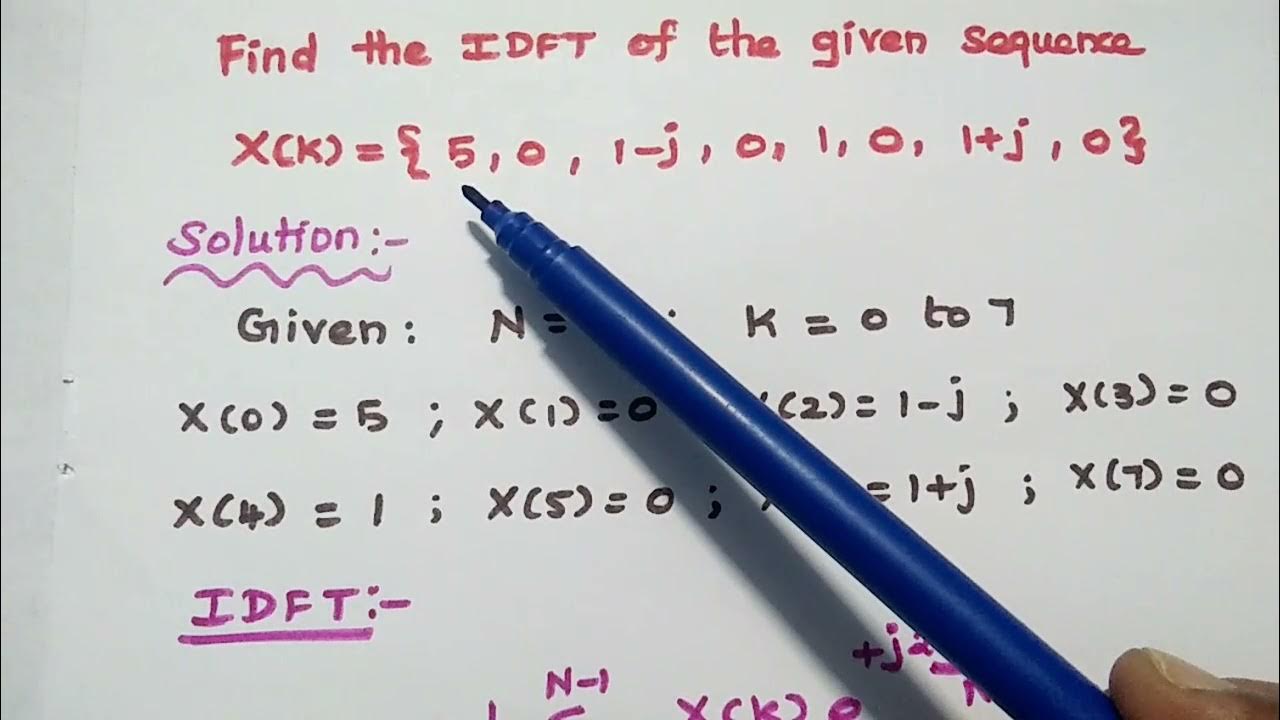 Find the IDFT of the given sequence
X(K) = { 5, 0, 1-j, 0, 1, 0, 1+j, 0}
Solution:-
Given: N = ; K = 0 to 7
X(0) = 5 ; X(1) = 0 (2) = 1-j ; X(3) = 0
X(4) = 1 ; X(5) = 0 ; = 1+j ; X(7) = 0
IDFT:-
+j2
N-1 N
X(K)